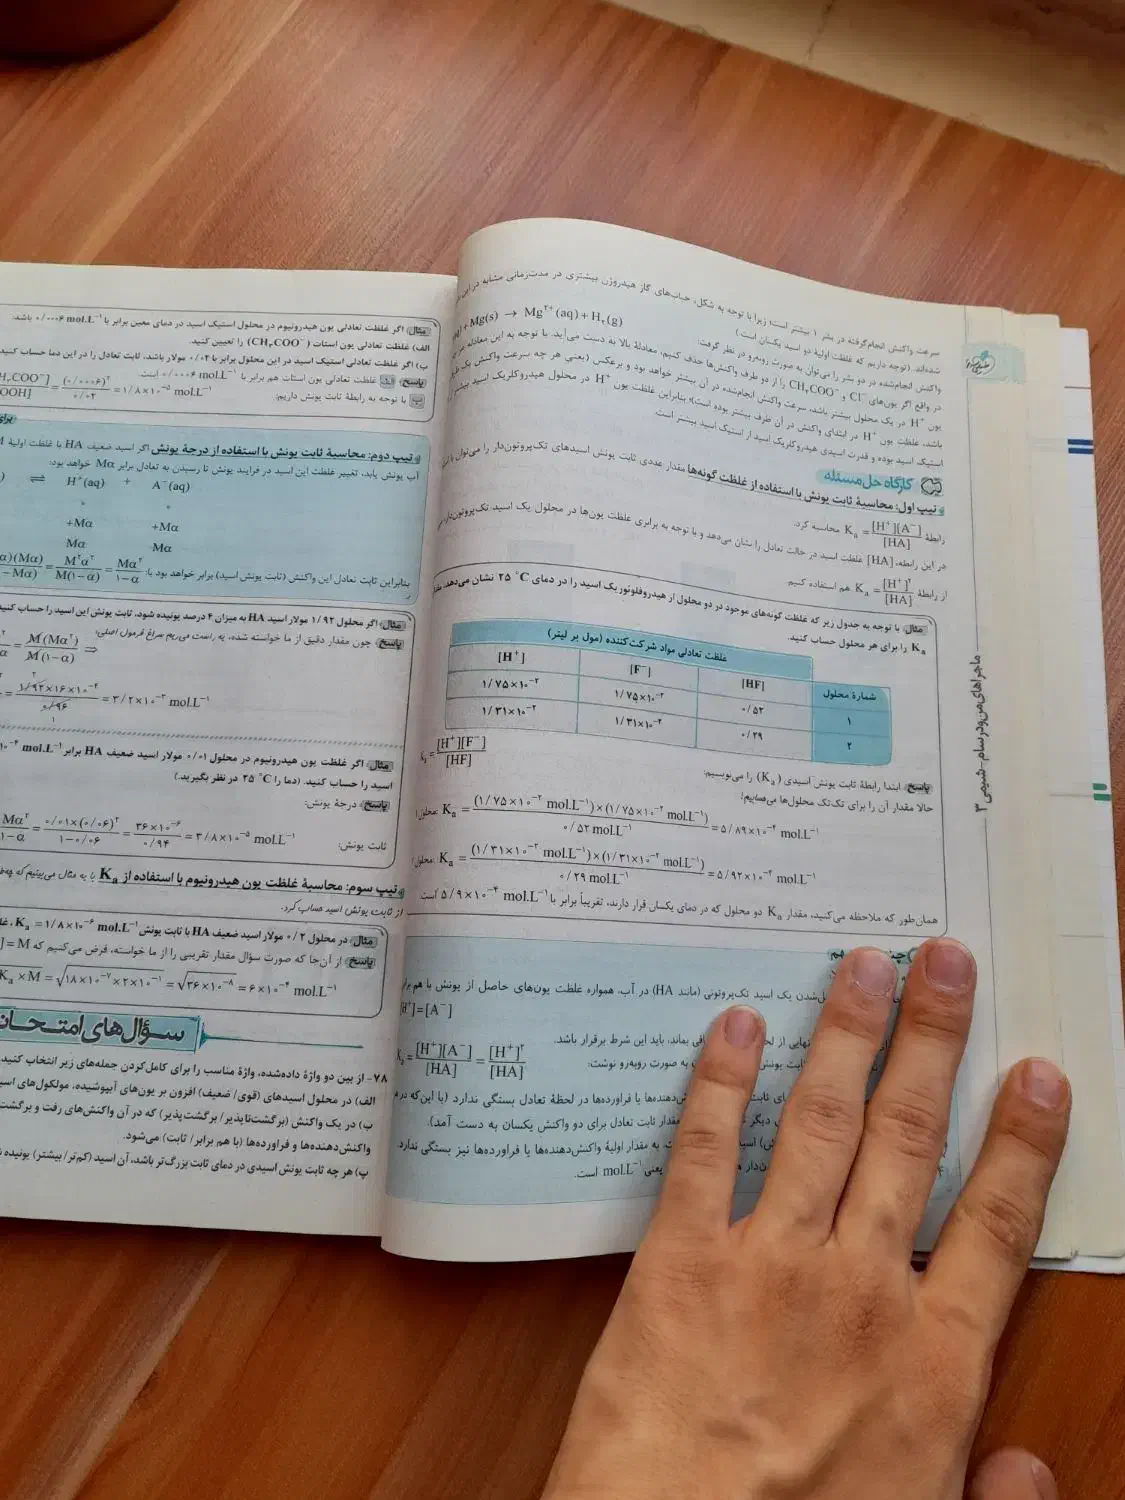 سرعت واکنش انجام‌گرفته در بشر ۱ بیشتر است؛ زیرا با توجه به شکل، حباب‌های گاز هیدروژن بیشتری در مدت‌زمانی مشابه در این
شده‌اند. (توجه داریم که غلظت اولیهٔ دو اسید یکسان است.)
واکنش انجام‌شده در دو بشر را می‌توان به صورت روبه‌رو در نظر گرفت:
+Mg(s) → Mg²⁺(aq)+H₂(g)
در واقع اگر یون‌های Cl⁻ و CH₃COO⁻ را از دو طرف واکنش‌ها حذف کنیم، معادلهٔ بالا به دست می‌آید. با توجه به این معادله هر
یون H⁺ در یک محلول بیشتر باشد، سرعت واکنش انجام‌شده در آن بیشتر خواهد بود و برعکس (یعنی هر چه سرعت واکنش یک
باشد، غلظت یون H⁺ در ابتدای واکنش در آن ظرف بیشتر بوده است)؛ بنابراین غلظت یون H⁺ در محلول هیدروکلریک اسید
استیک اسید بوده و قدرت اسیدی هیدروکلریک اسید از استیک اسید بیشتر است.
کارگاه حل مسئله
تیپ اول: محاسبهٔ ثابت یونش با استفاده از غلظت گونه‌ها مقدار عددی ثابت یونش اسیدهای تک‌پروتون‌دار را می‌توان با
رابطهٔ Kₐ = [H⁺][A⁻] / [HA] محاسبه کرد.
در این رابطه، [HA] غلظت اسید در حالت تعادل را نشان می‌دهد و با توجه به برابری غلظت یون‌ها در محلول یک اسید تک‌پروتون‌دار
از رابطهٔ Kₐ = [H⁺]² / [HA] هم استفاده کنیم
مثال با توجه به جدول زیر که غلظت گونه‌های موجود در دو محلول از هیدروفلوئوریک اسید را در دمای ۲۵ °C نشان می‌دهد،
Kₐ را برای هر محلول حساب کنید.
شمارهٔ محلول غلظت تعادلی مواد شرکت‌کننده (مول بر لیتر)
[HF] [F⁻] [H⁺]
۱ ۰/۵۲ ۱/۷۵×۱۰⁻² ۱/۷۵×۱۰⁻²
۲ ۰/۲۹ ۱/۳۱×۱۰⁻² ۱/۳۱×۱۰⁻²
پاسخ ابتدا رابطهٔ ثابت یونش اسیدی (Kₐ) را می‌نویسیم:
Kₐ = [H⁺][F⁻] / [HF]
حالا مقدار آن را برای تک‌تک محلول‌ها می‌حسابیم!
محلول ۱: Kₐ = (۱/۷۵×۱۰⁻² mol.L⁻¹)×(۱/۷۵×۱۰⁻² mol.L⁻¹) / ۰/۵۲ mol.L⁻¹ = ۵/۸۹×۱۰⁻⁴ mol.L⁻¹
محلول: Kₐ = (۱/۳۱×۱۰⁻² mol.L⁻¹)×(۱/۳۱×۱۰⁻² mol.L⁻¹) / ۰/۲۹ mol.L⁻¹ = ۵/۹۲×۱۰⁻⁴ mol.L⁻¹
همان‌طور که ملاحظه می‌کنید، مقدار Kₐ دو محلول که در دمای یکسان قرار دارند، تقریباً برابر با ۵/۹×۱۰⁻⁴ mol.L⁻¹ است
شدن یک اسید تک‌پروتونی (مانند HA) در آب، همواره غلظت یون‌های حاصل از یونش با هم
[H⁺]=[A⁻]
بماند، باید این شرط برقرار باشد.
به صورت روبه‌رو نوشت:
Kₐ = [H⁺][A⁻] / [HA] = [H⁺]² / [HA]
دهنده‌ها یا فراورده‌ها در لحظهٔ تعادل بستگی ندارد (با این‌که در
مقدار ثابت تعادل برای دو واکنش یکسان به دست آمد).
به مقدار اولیهٔ واکنش‌دهنده‌ها یا فراورده‌ها نیز بستگی ندارد.
یعنی mol.L⁻¹ است.
ماجراهای من و درسام - شیمی ۳
مثال اگر غلظت تعادلی یون هیدرونیوم در محلول استیک اسید در دمای معین برابر با ۰/۰۰۰۶ mol.L⁻¹ باشد:
الف) غلظت تعادلی یون استات (CH₃COO⁻) را تعیین کنید.
ب) اگر غلظت تعادلی استیک اسید در این محلول برابر با ۰/۰۲ مولار باشد، ثابت تعادل را در این دما حساب کنید
پاسخ الف غلظت تعادلی یون استات هم برابر با ۰/۰۰۰۶ mol.L⁻¹ است.
ب با توجه به رابطهٔ ثابت یونش داریم:
= (۰/۰۰۰۶)² / ۰/۰۲ = ۱/۸×۱۰⁻⁵ mol.L⁻¹
تیپ دوم: محاسبهٔ ثابت یونش با استفاده از درجهٔ یونش اگر اسید ضعیف HA با غلظت اولیهٔ M
آب یونش یابد، تغییر غلظت این اسید در فرایند یونش تا رسیدن به تعادل برابر Mα خواهد بود:
⇌ H⁺(aq) + A⁻(aq)
۰ ۰
+Mα +Mα
Mα Mα
بنابراین ثابت تعادل این واکنش (ثابت یونش اسید) برابر خواهد بود با:
M²α² / M(۱−α) = Mα² / ۱−α
مثال اگر محلول ۱/۹۲ مولار اسید HA به میزان ۴ درصد یونیده شود، ثابت یونش این اسید را حساب کنید
پاسخ چون مقدار دقیق از ما خواسته شده، یه راست می‌ریم سراغ فرمول اصلی:
= M(Mα²) / M(۱−α) ⇒
= ۱/۹۲×۱۶×۱۰⁻⁴ / ۰/۹۶ = ۳/۲×۱۰⁻³ mol.L⁻¹
مثال اگر غلظت یون هیدرونیوم در محلول ۰/۰۱ مولار اسید ضعیف HA برابر
اسید را حساب کنید. (دما را ۲۵ °C در نظر بگیرید.)
پاسخ درجهٔ یونش:
ثابت یونش: Mα² / ۱−α = ۰/۰۱×(۰/۰۶)² / ۱−۰/۰۶ = ۳۶×۱۰⁻⁶ / ۰/۹۴ = ۳/۸×۱۰⁻⁵ mol.L⁻¹
تیپ سوم: محاسبهٔ غلظت یون هیدرونیوم با استفاده از Kₐ
از ثابت یونش اسید حساب کرد.
مثال در محلول ۰/۲ مولار اسید ضعیف HA با ثابت یونش Kₐ = ۱/۸×۱۰⁻⁶ mol.L⁻¹
پاسخ از آن‌جا که صورت سؤال مقدار تقریبی را از ما خواسته، فرض می‌کنیم که
Kₐ×M = √۱۸×۱۰⁻⁷×۲×۱۰⁻¹ = √۳۶×۱۰⁻⁸ = ۶×۱۰⁻⁴ mol.L⁻¹
سؤال‌های امتحان
۷۸- از بین دو واژهٔ داده‌شده، واژهٔ مناسب را برای کامل‌کردن جمله‌های زیر انتخاب کنید.
الف) در محلول اسیدهای (قوی/ ضعیف) افزون بر یون‌های آبپوشیده، مولکول‌های
ب) در یک واکنش (برگشت‌ناپذیر/ برگشت‌پذیر) که در آن واکنش‌های رفت و برگشت
واکنش‌دهنده‌ها و فراورده‌ها (با هم برابر/ ثابت) می‌شود.
پ) هر چه ثابت یونش اسیدی در دمای ثابت بزرگ‌تر باشد، آن اسید (کم‌تر/ بیشتر) یونیده